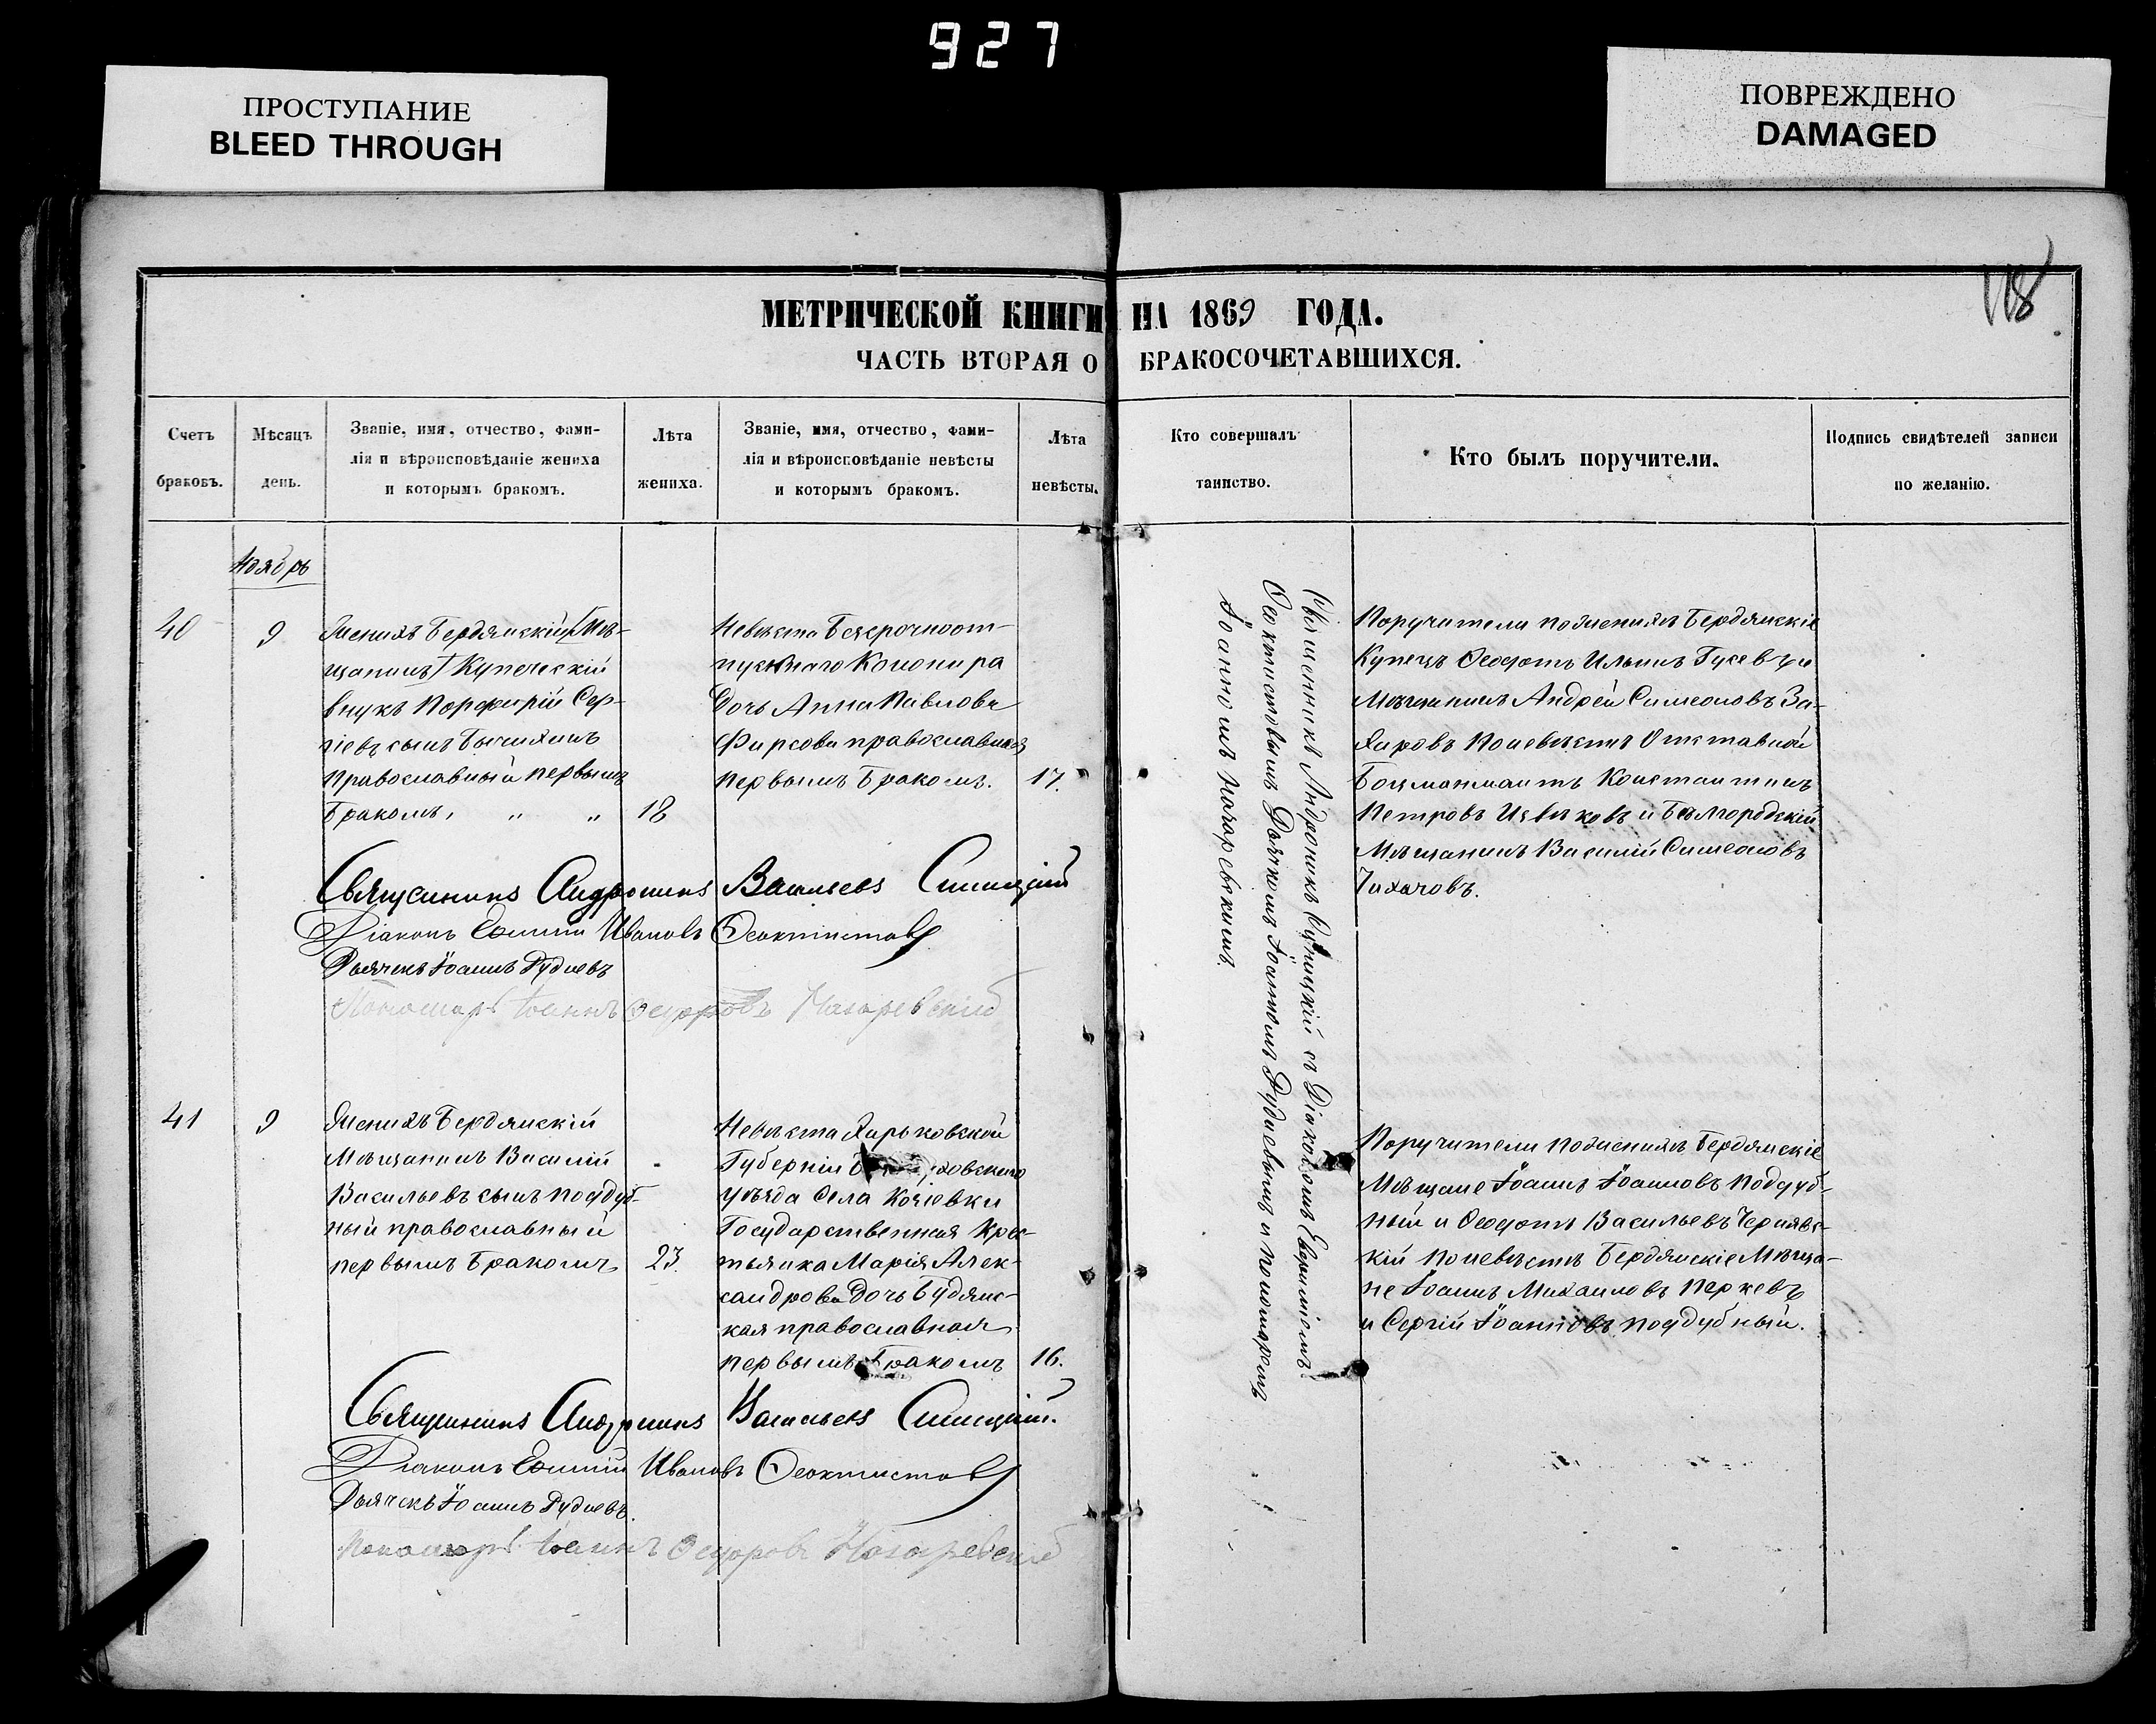 927
ПРОСТУПАНИЕ
BLEED THROUGH
ПОВРЕЖДЕНО
DAMAGED
118
МЕТРИЧЕСКОЙ КНИГИ НА 1869 ГОДА.
ЧАСТЬ ВТОРАЯ О БРАКОСОЧЕТАВШИХСЯ.
Счетъ
браковъ.
Мѣсяцъ
день.
Званіе, имя, отчество, фами-
лія и вѣроисповѣданіе жениха
и которымъ бракомъ.
Лѣта
жениха.
Званіе, имя, отчество, фами-
лія и вѣроисповѣданіе невѣсты
и которымъ бракомъ.
Лѣта
невѣсты.
Кто совершалъ
таинство.
Кто былъ поручители.
Подпись свидѣтелей записи
по желанію.
Ноябрь
40
9
Женихъ Бердянскій (Мѣ-
щанинъ) Купеческій
внукъ Порфирій Сер-
гіевъ сынъ
Православный первымъ
Бракомъ, " "
18
Невѣста Безсрочноот-
пускнаго Канонира
дочь Анна Павлова
Фирсова православная
первымъ Бракомъ.
17.
Священникъ Андроникъ Синицкій съ Діакономъ Евфиміемъ
Феоктистовымъ Дьячкомъ Іоанномъ Рудневымъ и пономаремъ
Іоанномъ Назаревскимъ.
Поручители по женихѣ Бердянскіе
Купецъ Феодотъ Ильинъ Гусевъ и
Мѣщанинъ Андрей Симеоновъ За-
харовъ по невѣстѣ Отставной
Боцманматъ Константинъ
Петровъ Извѣковъ и Бѣлгородскій
Мѣщанинъ Василій Симеоновъ
Священникъ Андроникъ Васильевъ Синицкій
Діаконъ Евфимій Ивановъ Феоктистовъ
Дьячекъ Іоаннъ Рудневъ
Пономарь Іоаннъ Феодоровъ Назаревскій
41
9
Женихъ Бердянскій
Мѣщанинъ Василій
Васильевъ сынъ Поддуб-
ный православный
первымъ Бракомъ
23.
Невѣста Харьковской
Губерніи
уѣзда Села
Государственная Кре-
стьянка Марія Алек-
сандрова дочь Будянс-
кая православная
первымъ Бракомъ
16.
Поручители по женихѣ Бердянскіе
Мѣщане Іоаннъ Іоанновъ Поддуб-
ный и Феодотъ Васильевъ Чернявс-
кій по невѣстѣ Бердянскіе Мѣща-
не Іоаннъ Михаиловъ
и Сергій Іоанновъ Поддубный.
Священникъ Андроникъ Васильевъ Синицкій.
Діаконъ Евфимій Ивановъ Феоктистовъ
Дьячекъ Іоаннъ Рудневъ.
Пономарь Іоаннъ Феодоровъ Назаревскій